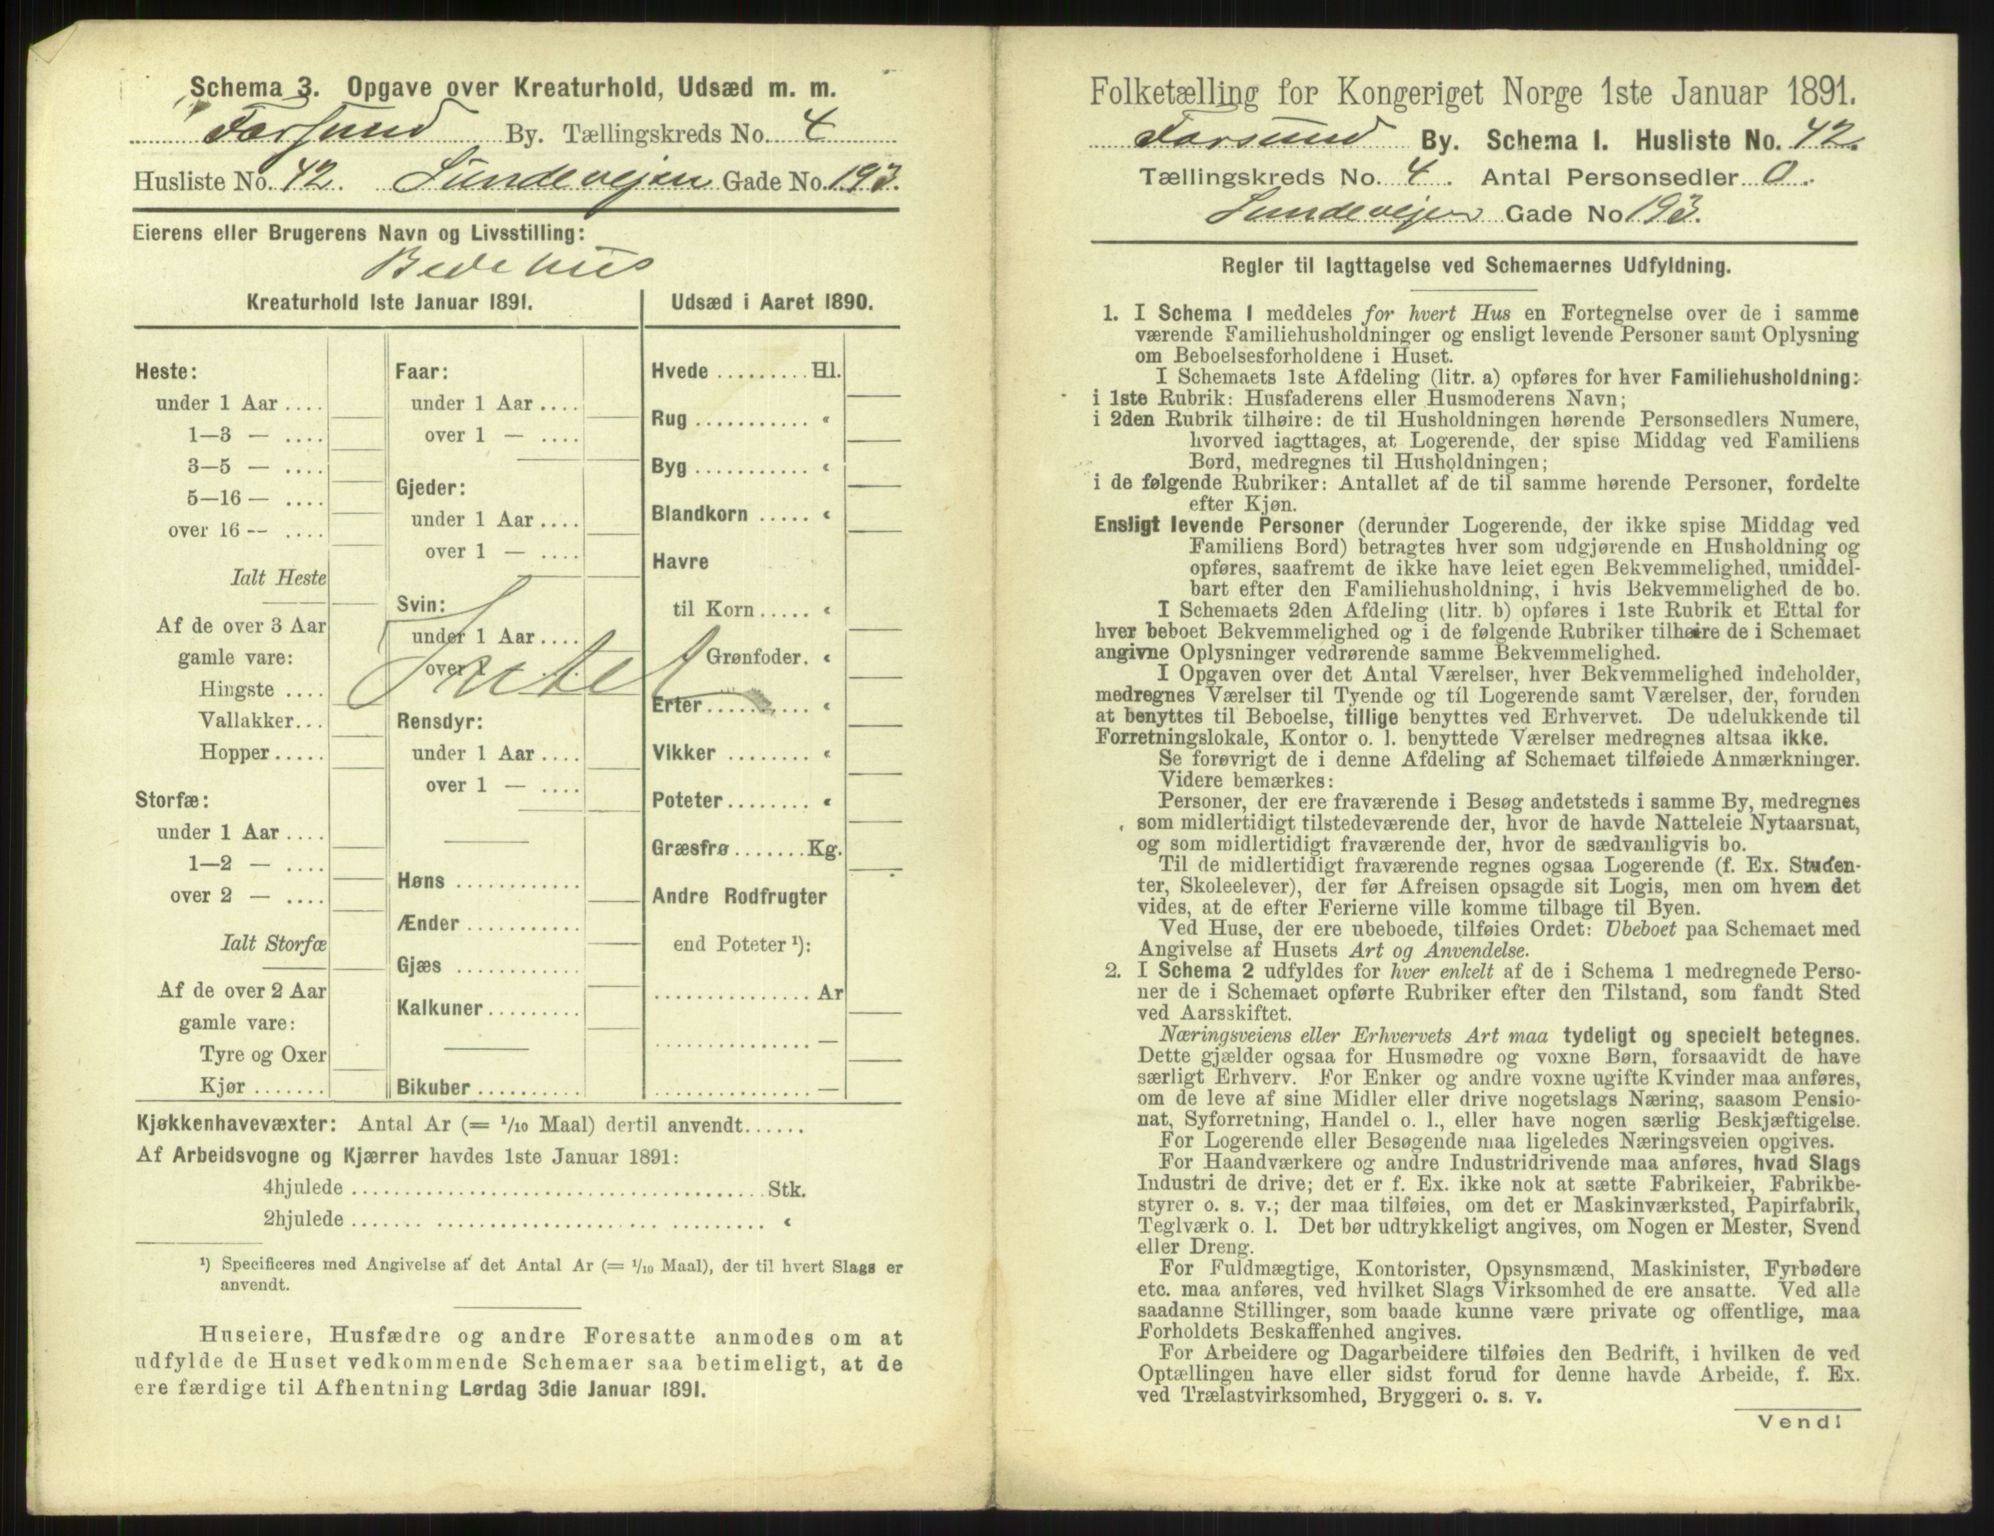 Schema 3. Opgave over Kreaturhold, Udsæd m. m.
Farsund By. Tællingskreds No. 4
Husliste No. 42. Sundevejen Gade No. 193.
Eierens eller Brugerens Navn og Livsstilling:
Bedehus
Kreaturhold 1ste Januar 1891.
Heste:
under 1 Aar ....
1—3 — ....
3—5 — ....
5—16 — ....
over 16 — ....
Ialt Heste
Af de over 3 Aar
gamle vare:
Hingste ....
Vallakker...
Hopper.....
Storfæ:
under 1 Aar ....
1—2 — ....
over 2 — ....
Ialt Storfæ
Af de over 2 Aar
gamle vare:
Tyre og Oxer
Kjør ........
Faar:
under 1 Aar ....
over 1 — ....
Gjeder:
under 1 Aar ....
over 1 — ....
Svin:
under 1 Aar ....
over
Intet
Rensdyr:
under 1 Aar ....
over 1 — ....
Høns ............
Ænder ...........
Gjæs ............
Kalkuner.........
Bikuber..........
Udsæd i Aaret 1890.
Hvede .........Hl.
Rug ........... "
Byg ........... "
Blandkorn ..... "
Havre
til Korn..... "
Grønfoder. "
Erter.......... "
Vikker ........ "
Poteter........ "
Græsfrø.......Kg.
Andre Rodfrugter
end Poteter ¹):
............... Ar
............... —
............... —
Kjøkkenhavevæxter: Antal Ar (= 1/10 Maal) dertil anvendt......
Af Arbeidsvogne og Kjærrer havdes 1ste Januar 1891:
4hjulede ....................................... Stk.
2hjulede ....................................... "
¹) Specificeres med Angivelse af det Antal Ar (= 1/10 Maal), der til hvert Slags er
anvendt.
Huseiere, Husfædre og andre Foresatte anmodes om at
udfylde de Huset vedkommende Schemaer saa betimeligt, at de
ere færdige til Afhentning Lørdag 3die Januar 1891.
Folketælling for Kongeriget Norge 1ste Januar 1891.
Farsund By. Schema 1. Husliste No. 42.
Tællingskreds No. 4. Antal Personsedler 0.
Sundevejen Gade No 193.
Regler til Iagttagelse ved Schemaernes Udfyldning.
1. I Schema 1 meddeles for hvert Hus en Fortegnelse over de i samme
værende Familiehusholdninger og ensligt levende Personer samt Oplysning
om Beboelsesforholdene i Huset.
I Schemaets 1ste Afdeling (litr. a) opføres for hver Familiehusholdning:
i 1ste Rubrik: Husfaderens eller Husmoderens Navn;
i 2den Rubrik tilhøire: de til Husholdningen hørende Personsedlers Numere,
hvorved iagttages, at Logerende, der spise Middag ved Familiens
Bord, medregnes til Husholdningen;
i de følgende Rubriker: Antallet af de til samme hørende Personer, fordelte
efter Kjøn.
Ensligt levende Personer (derunder Logerende, der ikke spise Middag ved
Familiens Bord) betragtes hver som udgjørende en Husholdning og
opføres, saafremt de ikke have leiet egen Bekvemmelighed, umiddel-
bart efter den Familiehusholdning, i hvis Bekvemmelighed de bo.
I Schemaets 2den Afdeling (litr. b) opføres i 1ste Rubrik et Ettal for
hver beboet Bekvemmelighed og i de følgende Rubriker tilhøire de i Schemaet
angivne Oplysninger vedrørende samme Bekvemmelighed.
I Opgaven over det Antal Værelser, hver Bekvemmelighed indeholder,
medregnes Værelser til Tyende og til Logerende samt Værelser, der, foruden
at benyttes til Beboelse, tillige benyttes ved Erhvervet. De udelukkende til
Forretningslokale, Kontor o. l. benyttede Værelser medregnes altsaa ikke.
Se forøvrigt de i denne Afdeling af Schemaet tilføiede Anmærkninger.
Videre bemærkes:
Personer, der ere fraværende i Besøg andetsteds i samme By, medregnes
som midlertidigt tilstedeværende der, hvor de havde Natteleie Nytaarsnat,
og som midlertidigt fraværende der, hvor de sædvanligvis bo.
Til de midlertidigt fraværende regnes ogsaa Logerende (f. Ex. Studen-
ter, Skoleelever), der før Afreisen opsagde sit Logis, men om hvem det
vides, at de efter Ferierne ville komme tilbage til Byen.
Ved Huse, der ere ubeboede, tilføies Ordet: Ubeboet paa Schemaet med
Angivelse af Husets Art og Anvendelse.
2. I Schema 2 udfyldes for hver enkelt af de i Schema 1 medregnede Perso-
ner de i Schemaet opførte Rubriker efter den Tilstand, som fandt Sted
ved Aarsskiftet.
Næringsveiens eller Erhvervets Art maa tydeligt og specielt betegnes.
Dette gjælder ogsaa for Husmødre og voxne Børn, forsaavidt de have
særligt Erhverv. For Enker og andre voxne ugifte Kvinder maa anføres,
om de leve af sine Midler eller drive nogetslags Næring, saasom Pensio-
nat, Syforretning, Handel o. l., eller have nogen særlig Beskjæftigelse.
For Logerende eller Besøgende maa ligeledes Næringsveien opgives.
For Haandværkere og andre Industridrivende maa anføres, hvad Slags
Industri de drive; det er f. Ex. ikke nok at sætte Fabrikeier, Fabrikbe-
styrer o. s. v.; der maa tilføies, om det er Maskinværksted, Papirfabrik,
Teglværk o. l. Det bør udtrykkeligt angives, om Nogen er Mester, Svend
eller Dreng.
For Fuldmægtige, Kontorister, Opsynsmænd, Maskinister, Fyrbødere
etc. maa anføres, ved hvilket Slags Virksomhed de ere ansatte. Ved alle
saadanne Stillinger, som baade kunne være private og offentlige, maa
Forholdets Beskaffenhed angives.
For Arbeidere og Dagarbeidere tilføies den Bedrift, i hvilken de ved
Optællingen have eller sidst forud for denne havde Arbeide, f. Ex.
ved Trælastvirksomhed, Bryggeri o. s. v.
Vend!